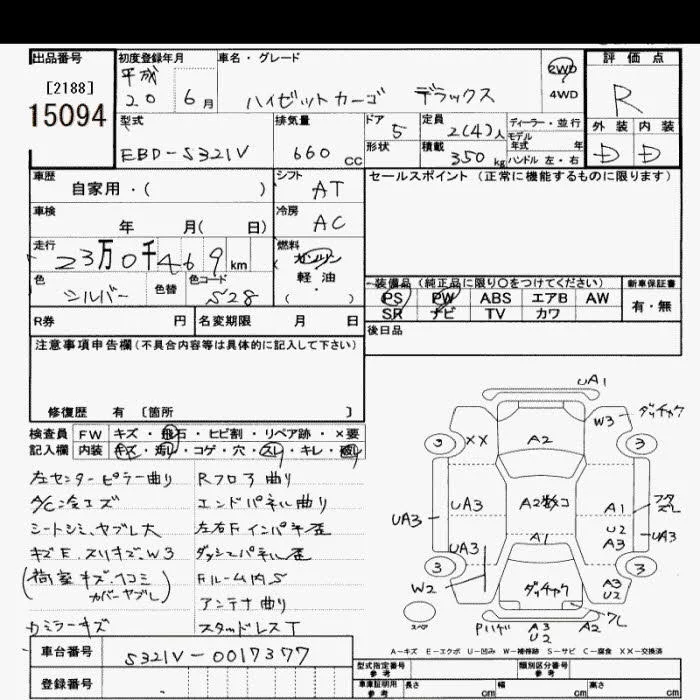 出品番号
[2188]
15094
初度登録年月
平成
20 6月
車名・グレード
ハイゼットカーゴ デラックス
2WD
4WD
評価点
R
外装 内装
D D
型式
EBD-S321V
排気量
660 CC
ドア 5
形状
定員 2(4)人
積載 350 kg
ディーラー・並行
モデル
年式 年
ハンドル 左・右
車歴
自家用・( )
シフト
AT
セールスポイント (正常に機能するものに限ります)
車検
年 月( 日)
冷房
AC
走行
23万0千469km
燃料
ガソリン
軽・油
・
( )
色
シルバー
色替
色コード
S28
装備品 (純正品に限り○をつけてください)
PS PW ABS エアB AW
SR ナビ TV カワ
新車保証書
有・無
R券 円
名変期限 月 日
後日品
注意事項申告欄(不具合内容等は具体的に記入して下さい)
修復歴 有 〔箇所 〕
検査員
記入欄
FW キズ・飛石・ヒビ割・リペア跡・×要
内装 キズ・汚れ・コゲ・穴・スレ・キレ・破れ
左センターピラー曲り
A/C冷エズ
シートシミ、ヤブレ大
キズE.スリキズ.W3
(荷室キズ、ヘコミ
カバーヤブレ)
カミラーキズ
Rフロア曲り
エンドパネル曲り
左右Fインパネ歪
ダッシュパネル歪
Fルーム内S
アンテナ曲り
スタッドレスT
UA1
W3
ダッチャク
3
XX
A2
3
UA3
UA3
A2数コ
A1
フタ
ズレ
U2
A3
UA3
UA3
A1
3
3
W2
ダッチャク
A3
U2
ワレ
スペア
Pハゲ
A3
U2
A2
A-キズ E-エクボ U-凹み W-補修跡 S-サビ C-腐食 XX-交換済
車台番号
S321V-0017377
登録番号
型式指定番号
参考
類別区分番号
参考
車庫証明用
参考
長さ cm
幅 cm
高さ cm